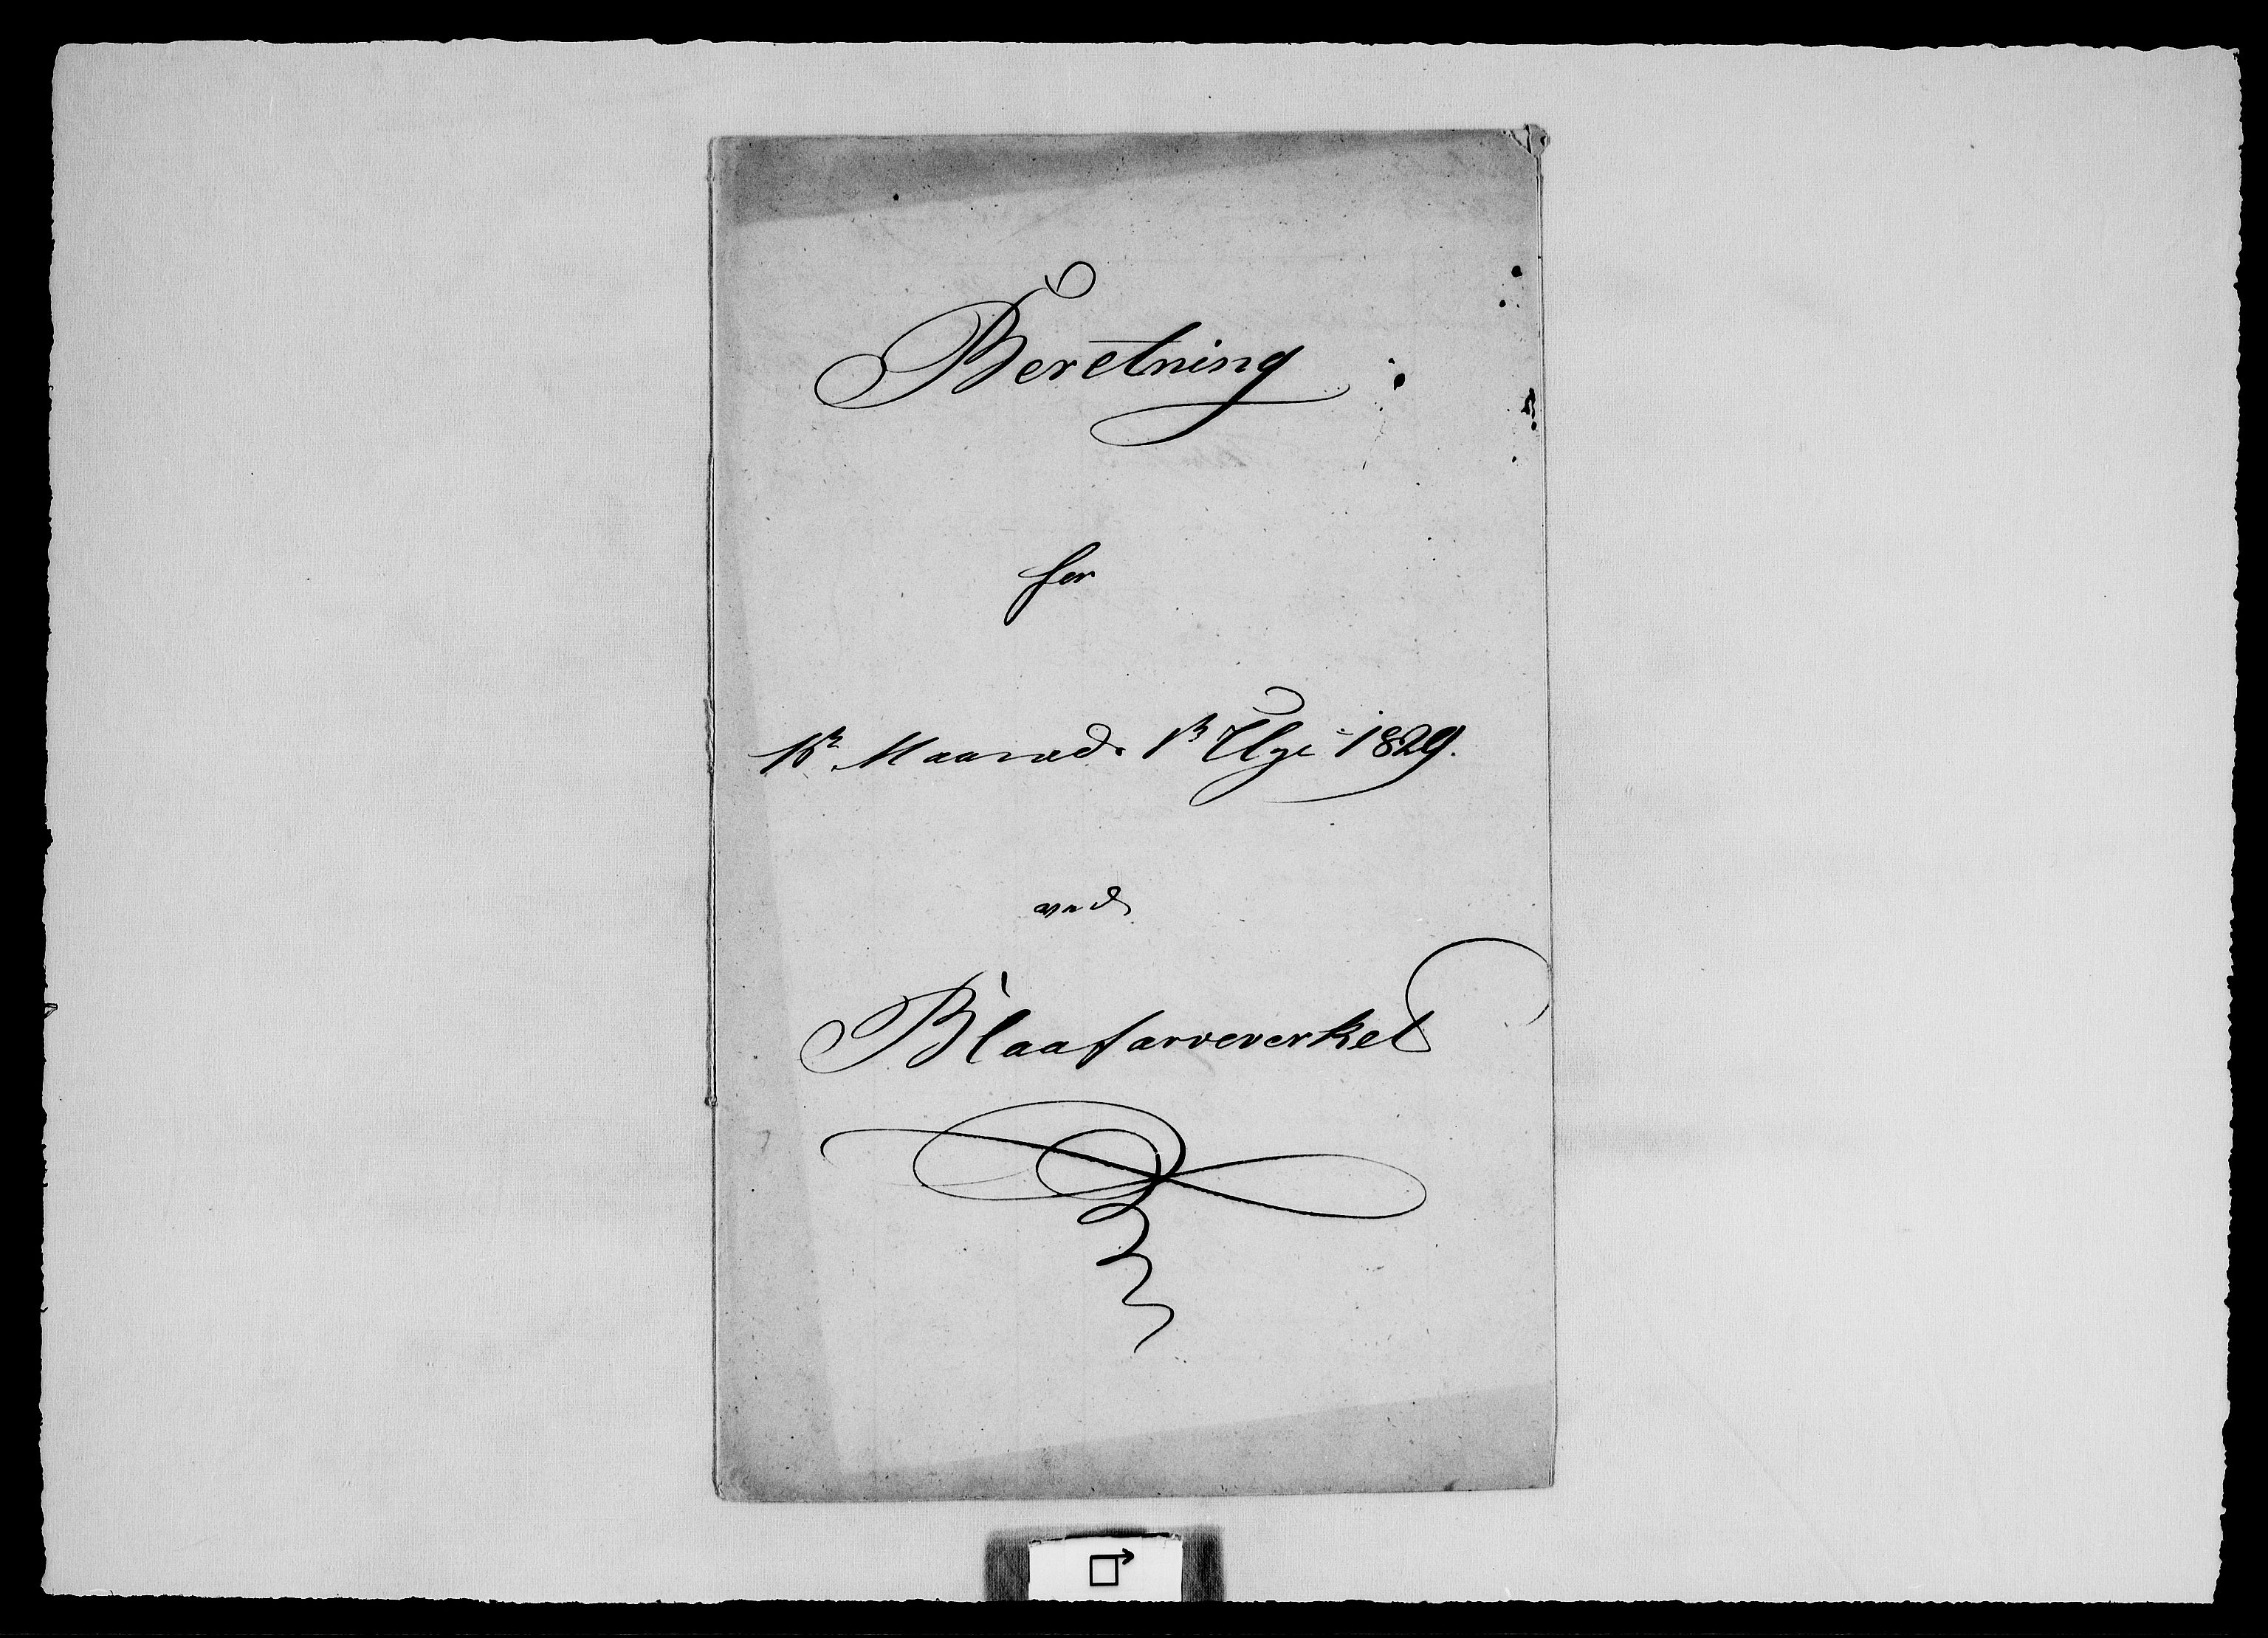 Beretning
for
1ste Maaneds 1ste Uge 1829.
ved
Blaafarveverket